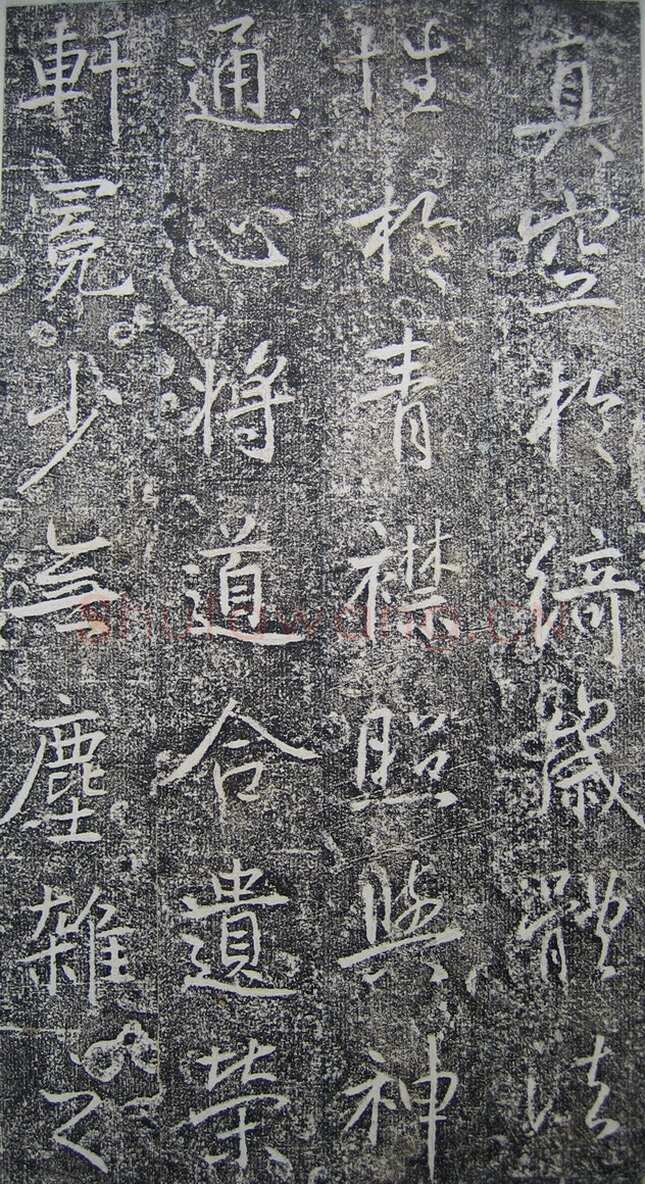 真空於綺歲體法
性於青襟照與神
通心將道合遺榮
軒冕少無塵雜之
Shufawang.CN